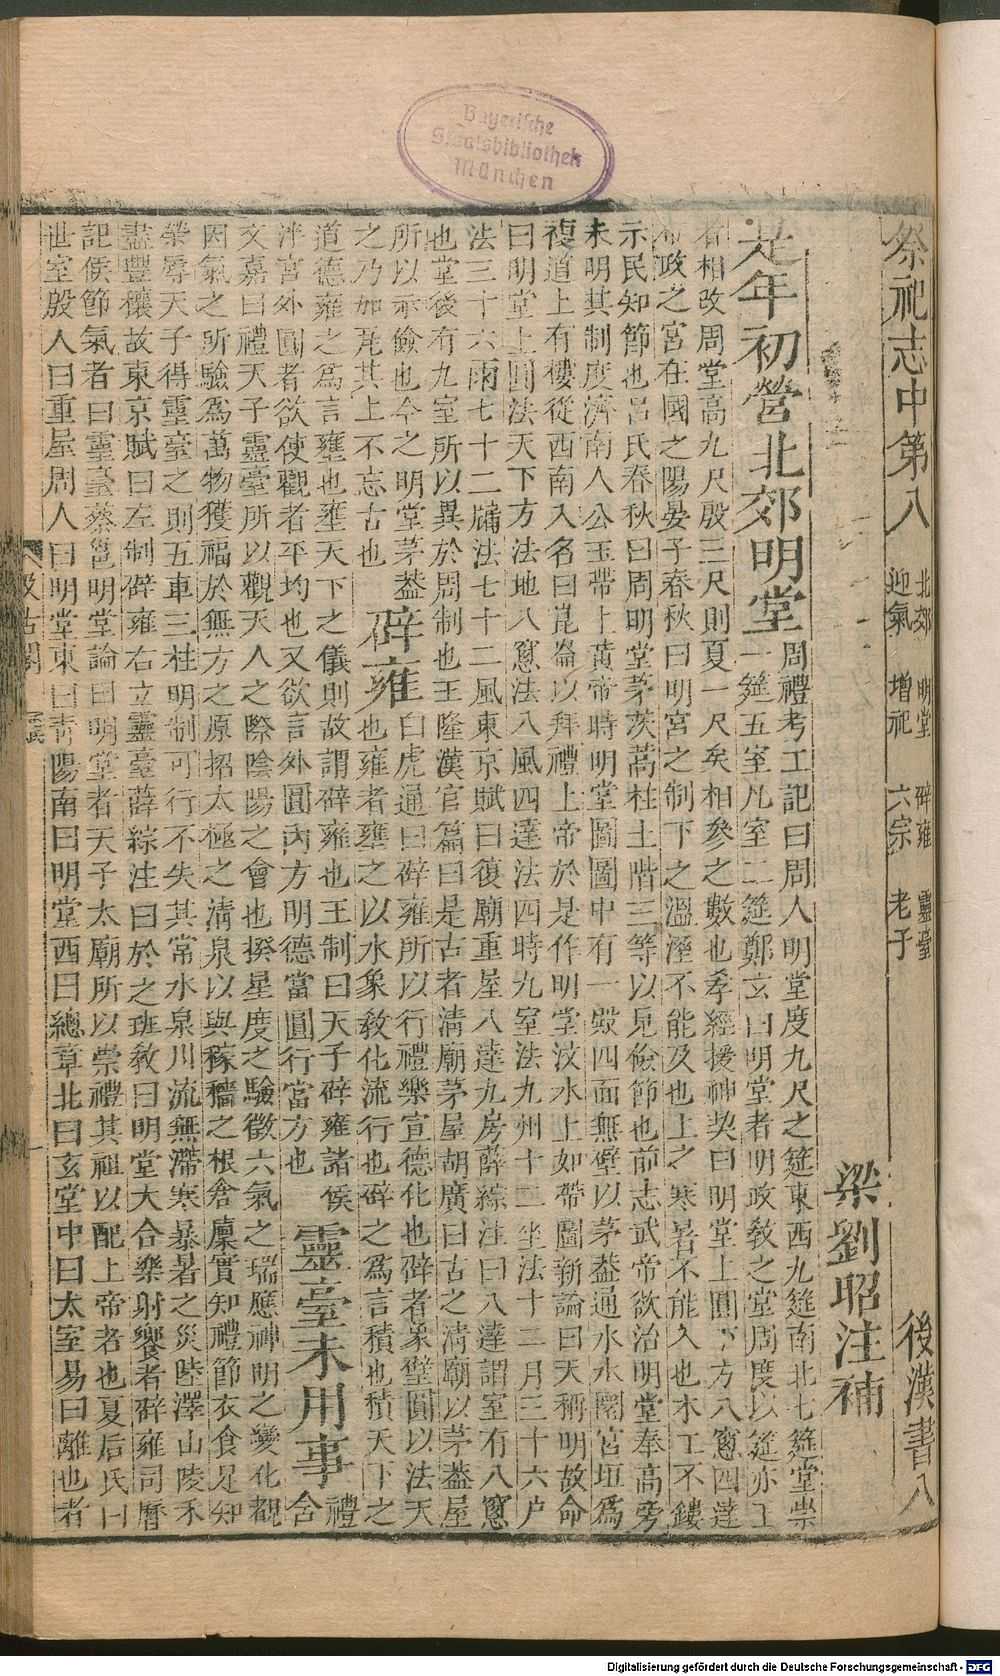 Bayerische
Staatsbibliothek
München
祭祀志中第八 北郊 明堂 辟雍 靈臺 迎氣 增祀 六宗 老子 後漢書八
梁劉昭注補
是年初營北郊明堂
周禮考工記曰周人明堂度九尺之筵東西九筵南北七筵堂崇
一筵五室凡室二筵鄭玄曰明堂者明政教之堂周度以筵亦王
者相改周堂高九尺殷三尺則夏一尺矣相參之數也孝經援神契曰明堂上圓下方八窻四達
布政之宮在國之陽晏子春秋曰明宮之制下之溫溼不能及也上之寒暑不能入也木工不鏤
示民知節也呂氏春秋曰周明堂茅茨蒿柱土階三等以見儉節也前志武帝欲治明堂奉高旁
未明其制度濟南人公玉帶上黃帝時明堂圖圖中有一殿四面無壁以茅蓋通水水圜宮垣爲
複道上有樓從西南入名曰崑崙以拜禮上帝於是作明堂汶水上如帶圖新論曰天稱明故命
曰明堂上圓法天下方法地八窻法八風四達法四時九室法九州十二坐法十二月三十六户
法三十六雨七十二牖法七十二風東京賦曰復廟重屋八達九房薛綜注曰八達謂室有八窻
也堂後有九室所以異於周制也王隆漢官篇曰是古者清廟茅屋胡廣曰古之清廟以茅蓋屋
所以示儉也今之明堂茅蓋
之乃加瓦其上不忘古也
辟雍
白虎通曰辟雍所以行禮樂宣德化也辟者象璧圓以法天
也雍者壅之以水象教化流行也辟之爲言積也積天下之
道德雍之爲言壅也壅天下之儀則故謂辟雍也王制曰天子辟雍諸侯
泮宮外圓者欲使觀者平均也又欲言外圓內方明德當圓行當方也
靈臺未用事
禮
含
文嘉曰禮天子靈臺所以觀天人之際陰陽之會也揆星度之驗徵六氣之瑞應神明之變化覩
因氣之所驗爲萬物獲福於無方之原招太極之清泉以與稼穡之根倉廩實知禮節衣食足知
榮辱天子得靈臺之則五車三柱明制可行不失其常水泉川流無滯寒暴暑之災陸澤山陵禾
盡豐穰故東京賦曰左制辟雍右立靈臺薛綜注曰於之班敎曰明堂大合樂射饗者辟雍司曆
記侯節氣者曰靈臺蔡邕明堂論曰明堂者天子太廟所以崇禮其祖以配上帝者也夏后氏曰
世室殷人曰重屋周人曰明堂東曰靑陽南曰明堂西曰總章北曰玄堂中曰太室易曰離也者